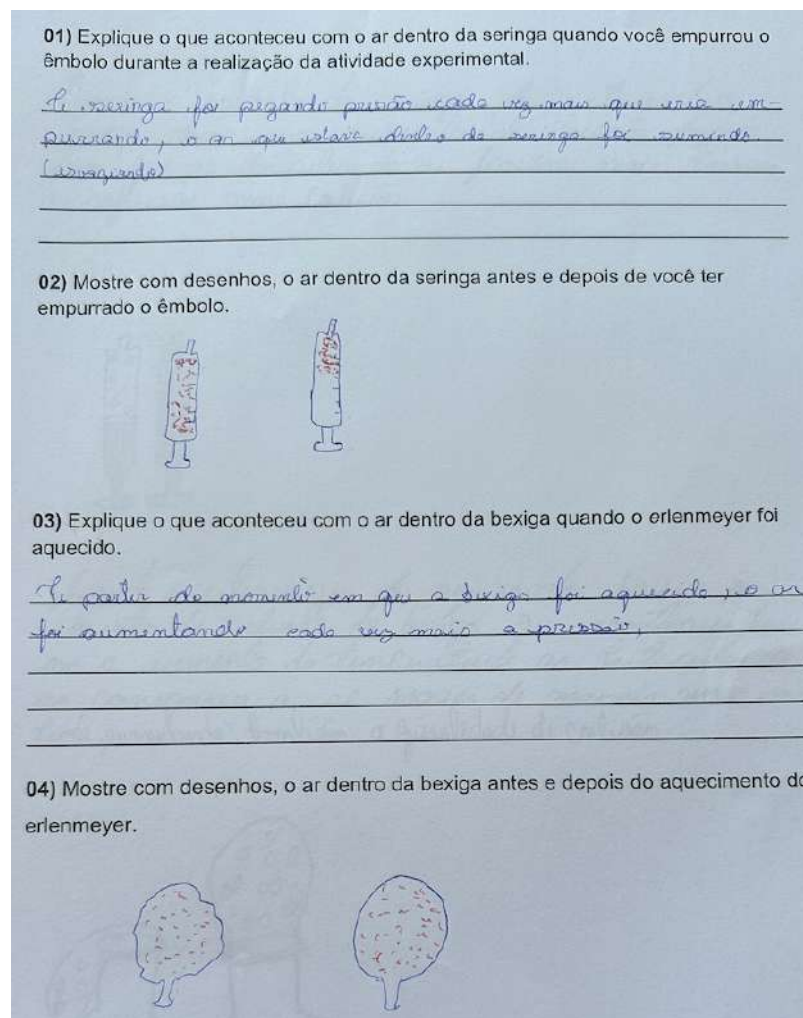 01) Explique o que aconteceu com o ar dentro da seringa quando você empurrou o
êmbolo durante a realização da atividade experimental.
A seringa foi pegando pressão cada vez mais que iria em-
purrando, o ar que estava dentro da seringa foi sumindo
02) Mostre com desenhos, o ar dentro da seringa antes e depois de você ter
empurrado o êmbolo.
03) Explique o que aconteceu com o ar dentro da bexiga quando o erlenmeyer foi
aquecido.
A partir do momento em que a bexiga foi aquecida, o ar
foi aumentando cada vez mais a pressão,
04) Mostre com desenhos, o ar dentro da bexiga antes e depois do aquecimento do
erlenmeyer.